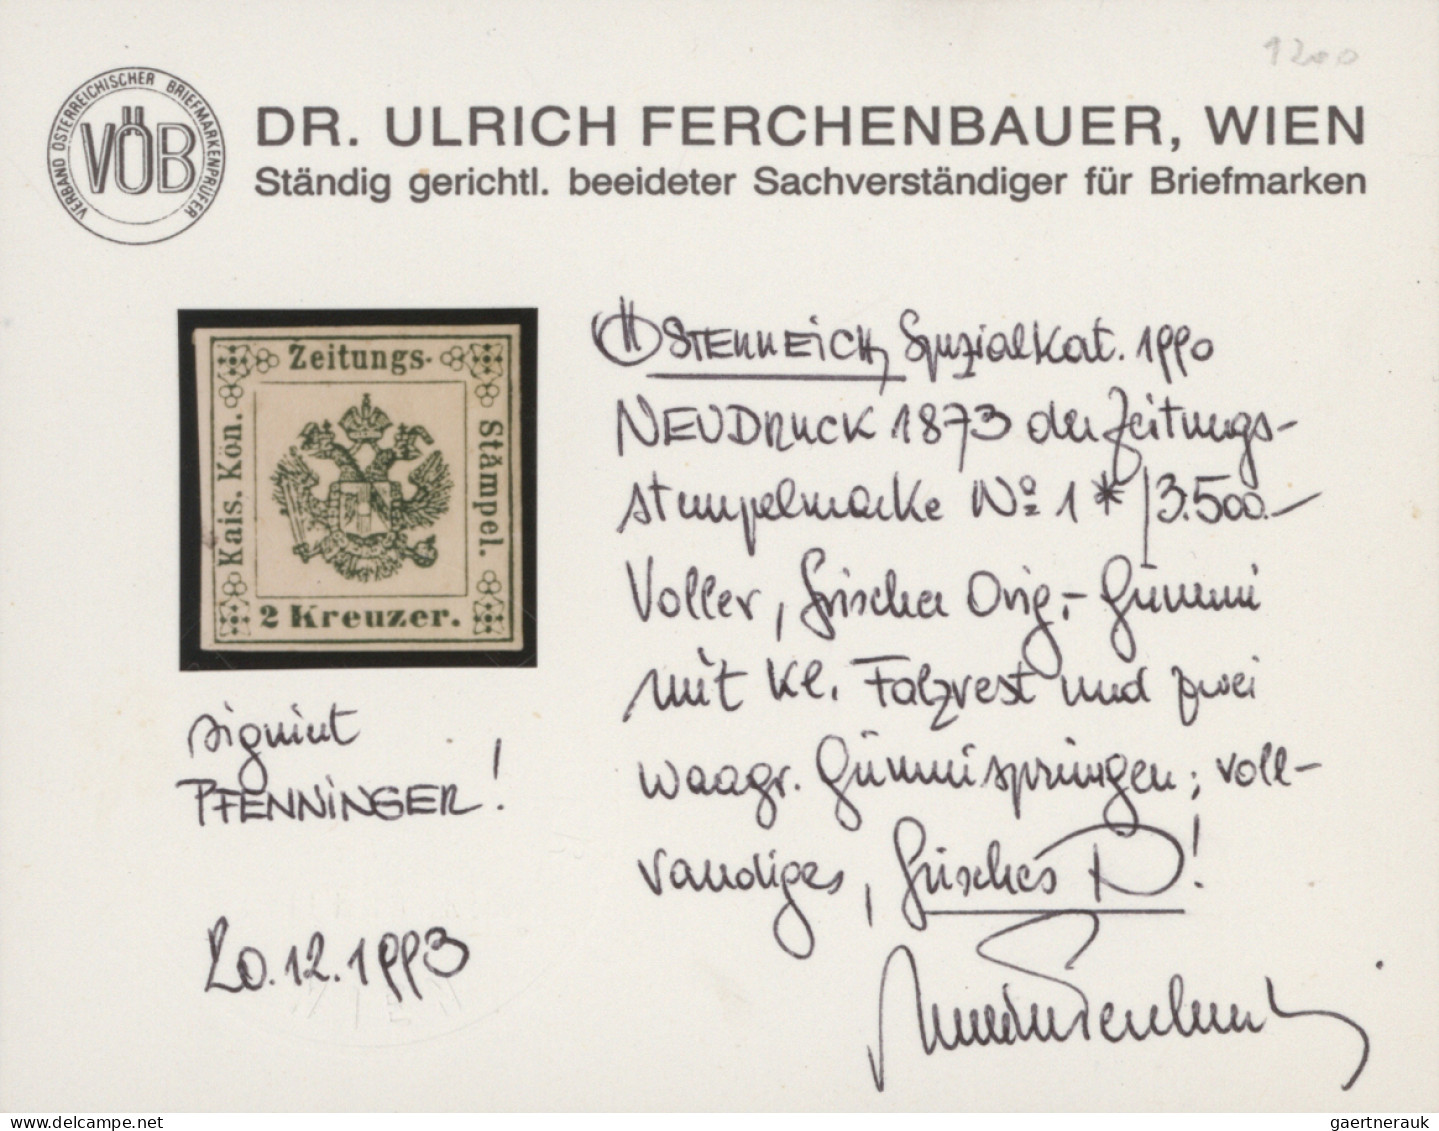 1200
VERBAND ÖSTERREICHISCHER BRIEFMARKENPRÜFER
VÖB
DR. ULRICH FERCHENBAUER, WIEN
Ständig gerichtl. beeideter Sachverständiger für Briefmarken
Zeitungs-
Kais. Kön.
Stämpel.
2 Kreuzer.
ÖSTERREICH, Spezialkat. 1990
NEUDRUCK 1873 der Zeitungs-
stempelmarke No 1 * / 3.500.-
Voller, frischer Orig.- Gummi
mit kl. Falzrest und zwei
waagr. Gummisprüngen; voll-
randiges, frisches
signiert
PFENNINGER!
20.12.1993
WIEN
delcampe.net
gaertnerauk